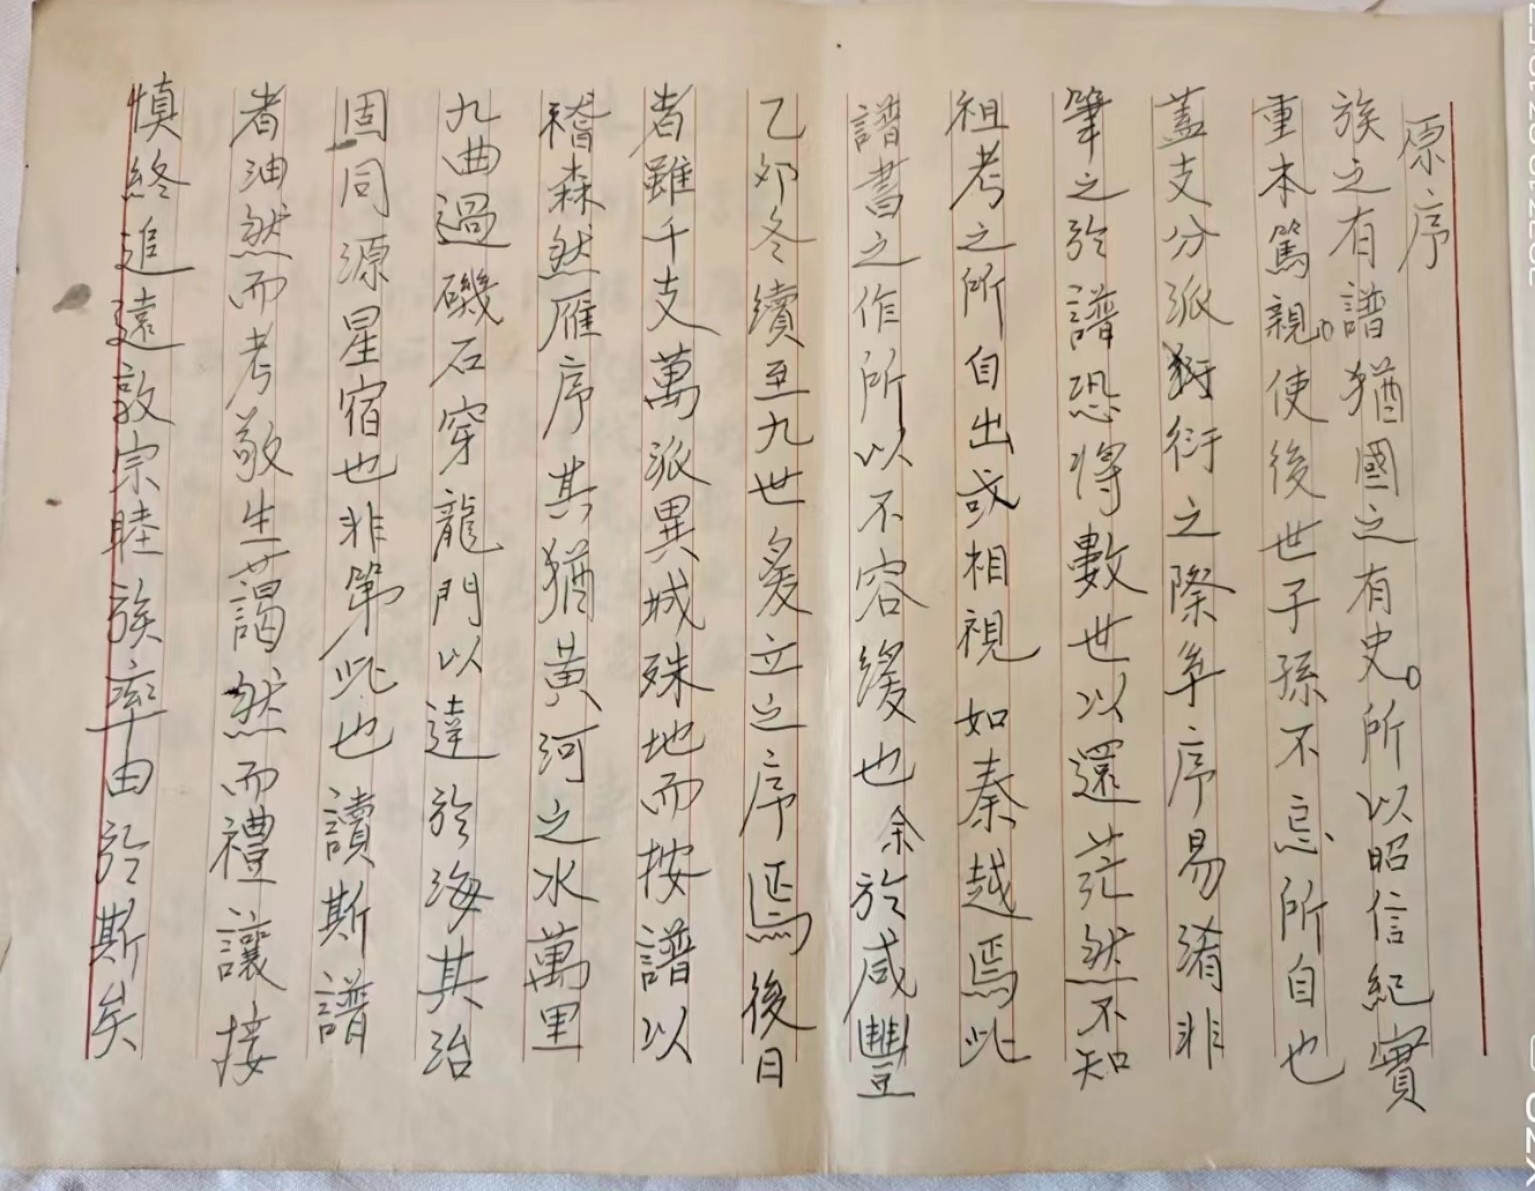 原序
族之有譜猶國之有史。所以昭信紀實
重本篤親。使後世子孫不忘所自也
蓋支分派衍之際年序易淆非
筆之於譜恐得數世以還茫然不知
祖考之所自出或相視如秦越焉此
譜書之作所以不容緩也余於咸豐
乙卯冬續至九世爰立之序焉後日
者雖千支萬派異城殊地而按譜以
稽森然雁序其猶黃河之水萬里
九曲過磯石穿龍門以達於海其治
固同源星宿也非第此也讀斯譜
者油然而考敬生藹然而禮讓接
慎終追遠敦宗睦族率由於斯矣